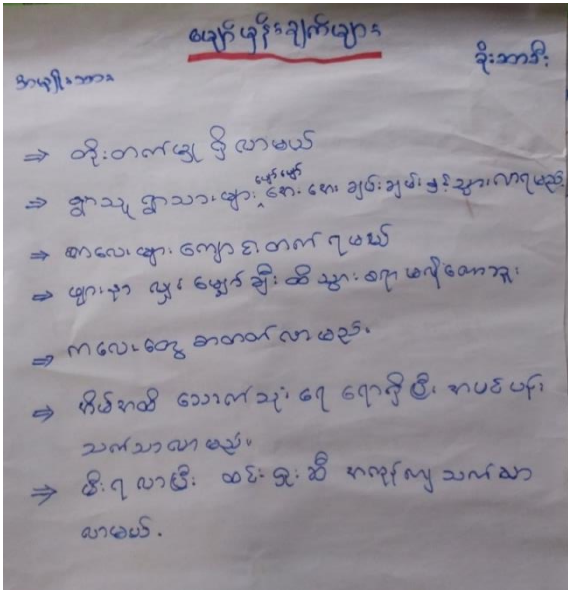 မျှော်မှန်းချက်များ
အမျိုးသား
ဒိုးသာဒီး
⇒ တိုးတက်မှု ရှိလာမယ်
⇒ ရွာသူ ရွာသားများ အေးအေးချမ်းချမ်းနှင့်သွားလာရမည်။
⇒ ကလေးများ ကျောင်းတက်ရမယ်
⇒ ဖျားနာ လျှင် မျှော်ချီးထိသွားစရာမလိုတော့ဘူး
⇒ ကလေးတွေ စာတတ်လာမည်။
⇒ အိမ်အထိ သောက်သုံးရေ ရောက်ရှိပြီး အပင်ပန်း
သက်သာလာမည်။
⇒ မီးရလာပြီး ထင်းရှူးဆီ အကုန်ကျသက်သာ
လာမယ်။